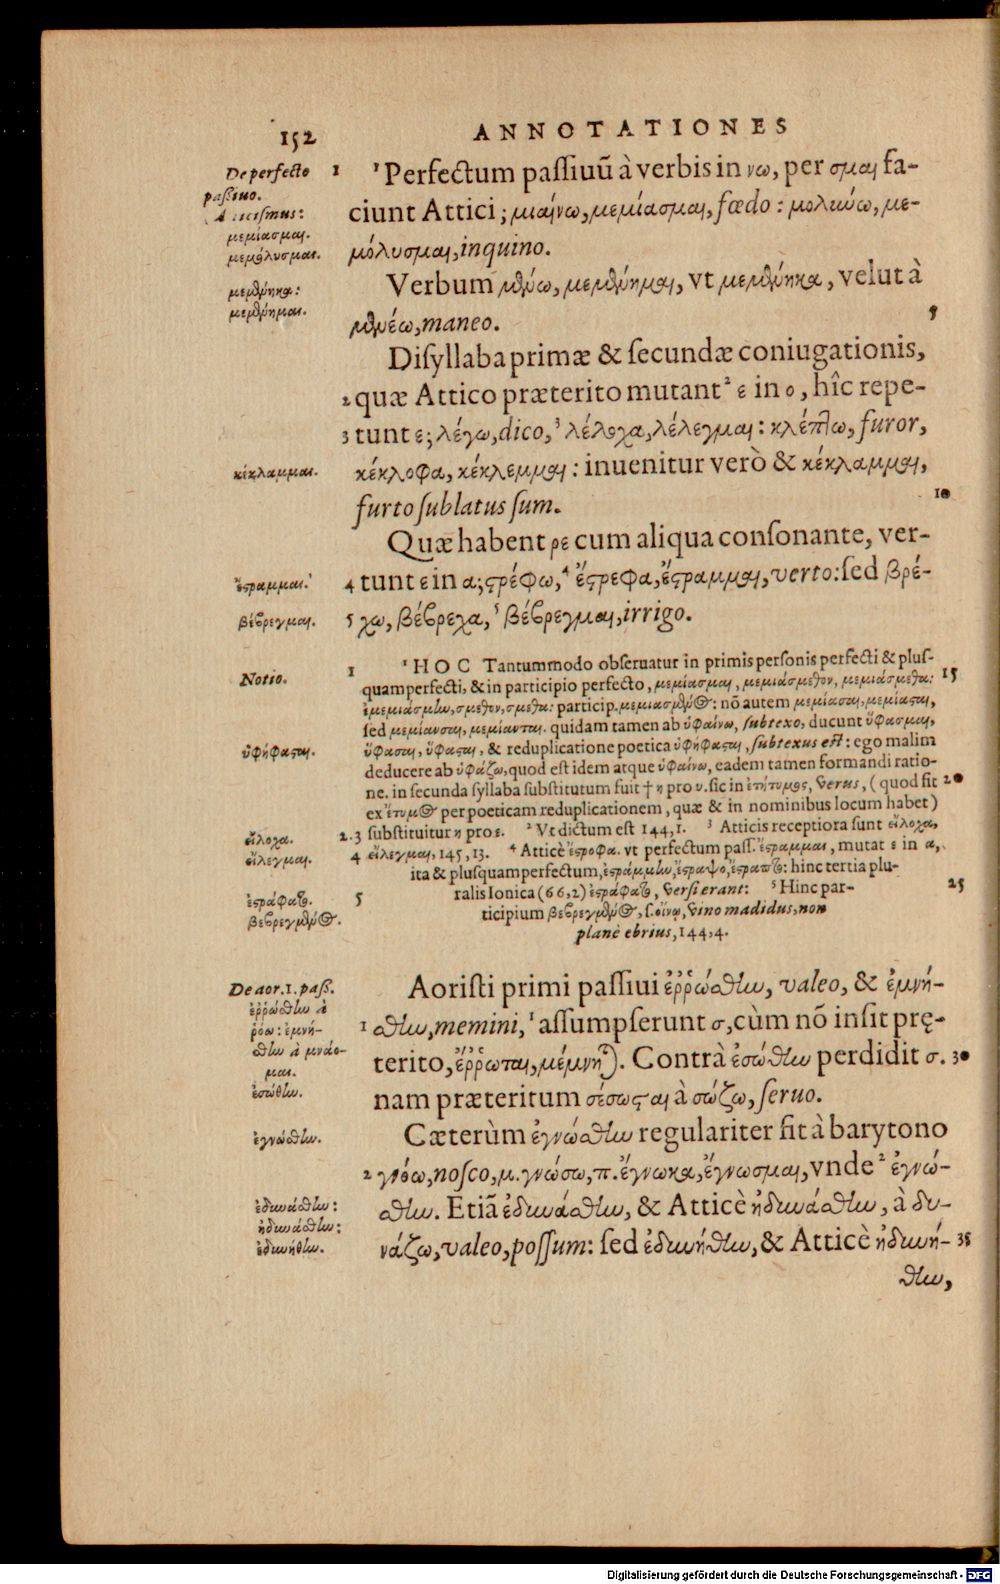 152 ANNOTATIONES
De perfecto
passiuo.
μεμίασμαι.
μεμόλυσμαι.
1 ¹Perfectum passiuū à verbis in νω, per σμαι fa-
ciunt Attici; μιαίνω, μεμίασμαι, fœdo: μολύνω, με-
μόλυσμαι, inquino.
μεμένηκα:
μεμένημαι.
Verbum μένω, μεμένημαι, vt μεμένηκα, velut à
5
μενέω, maneo.
Disyllaba primæ & secundæ coniugationis,
2 quæ Attico præterito mutant ² ε in ο, hîc repe-
3 tunt ε; λέγω, dico, ³ λέλοχα, λέλεγμαι: κλέπτω, furor,
κέκλαμμαι.
κέκλοφα, κέκλεμμαι: inuenitur verò & κέκλαμμαι,
10
furto sublatus sum.
Quæ habent ρε cum aliqua consonante, ver-
ἔστραμμαι.
4 tunt ε in α; στρέφω, ⁴ ἔστρεφα, ἔστραμμαι, verto: sed βρέ-
βέβρεγμαι.
5 χω, βέβρεχα, ⁵ βέβρεγμαι, irrigo.
Notio.
1 ¹HOC Tantummodo obseruatur in primis personis perfecti & plus-
15
quamperfecti, & in participio perfecto, μεμίασμαι, μεμιάσμεθον, μεμιάσμεθα:
ἐμεμιάσμην, σμεθον, σμεθα: particip. μεμιασμένος: nō autem μεμίασαι, μεμίασται,
sed μεμίανσαι, μεμίανται. quidam tamen ab ὑφαίνω, subtexo, ducunt ὕφασμαι,
ὑφήφασται.
ὕφασαι, ὕφασται, & reduplicatione poetica ὑφήφασται, subtexus est: ego malim
deducere ab ὑφάζω, quod est idem atque ὑφαίνω, eadem tamen formandi ratio-
ne. in secunda syllaba substitutum fuit † η pro υ. sic in ἐτήτυμος, verus, (quod fit 20
ex ἔτυμος per poeticam reduplicationem, quæ & in nominibus locum habet)
εἴλοχα.
2.3 substituitur η pro ε. ² Vt dictum est 144,1. ³ Atticis receptiora sunt εἴλοχα,
εἴλεγμαι.
4 εἴλεγμαι, 145,13. ⁴ Atticè ἔστροφα. vt perfectum pass. ἔστραμμαι, mutat ε in α,
ita & plusquamperfectum, ἐστράμμην, ἔστραψο, ἔστραπτο: hinc tertia plu-
ἐστράφατο.
5 ralis Ionica (66,2) ἐστράφατο, versi erant: ⁵ Hinc par-
25
βεβρεγμένος.
ticipium βεβρεγμένος, s. οἴνῳ, vino madidus, non
planè ebrius, 144,4.
De aor. 1. pass.
ἐῤῥώσθην à
ῥόω: ἐμνή-
σθην à μνάο-
μαι.
ἐσώθην.
Aoristi primi passiui ἐῤῥώσθην, valeo, & ἐμνή-
1 σθην, memini, ¹ assumpserunt σ, cùm nō insit prę-
terito, ἔῤῥωται, μέμνηται. Contrà ἐσώθην perdidit σ. 30
nam præteritum σέσωσται à σώζω, seruo.
ἐγνώσθην.
Cæterùm ἐγνώσθην regulariter fit à barytono
2 γνόω, nosco, μ. γνώσω, π. ἔγνωκα, ἔγνωσμαι, vnde ² ἐγνώ-
ἐδυνάσθην:
ἠδυνάσθην:
ἐδυνήθην.
σθην. Etiā ἐδυνάσθην, & Atticè ἠδυνάσθην, à δυ-
νάζω, valeo, possum: sed ἐδυνήθην, & Atticè ἠδυνή- 35
θην,
Digitalisierung gefördert durch die Deutsche Forschungsgemeinschaft - DFG